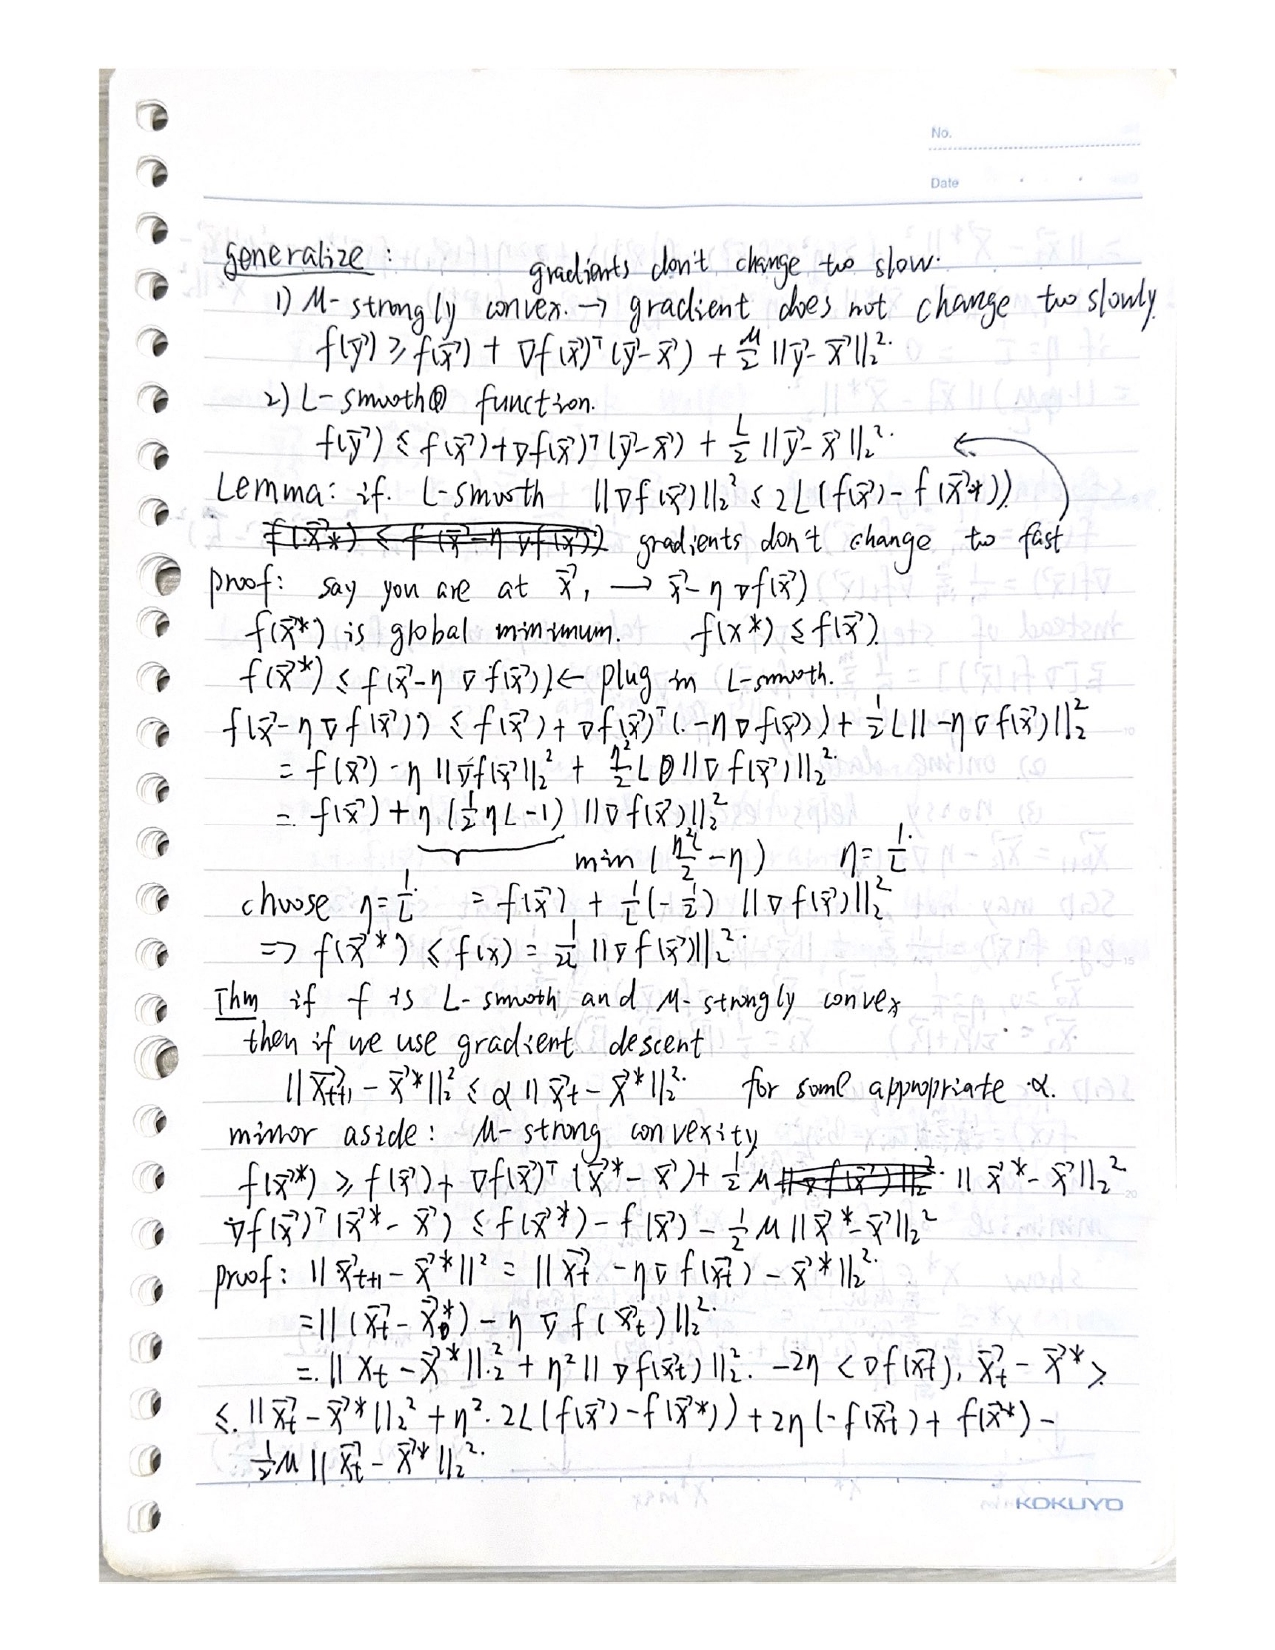 No.
Date
Generalize :
gradients don't change too slow.
1) μ-strongly convex. → gradient does not change too slowly.
f(y⃗) ≥ f(x⃗) + ∇f(x⃗)ᵀ(y⃗-x⃗) + μ/2 ||y⃗-x⃗||₂².
2) L-smooth function.
f(y⃗) ≤ f(x⃗)+∇f(x⃗)ᵀ(y⃗-x⃗) + L/2 ||y⃗-x⃗||₂².
Lemma: if L-smooth ||∇f(x⃗)||₂² ≤ 2L(f(x⃗)-f(x⃗*))
gradients don't change to fast
proof: say you are at x⃗, → x⃗-η∇f(x⃗)
f(x⃗*) is global minimum. f(x*) ≤ f(x⃗).
f(x⃗*) ≤ f(x⃗-η∇f(x⃗)) ← plug in L-smooth.
f(x⃗-η∇f(x⃗)) ≤ f(x⃗) + ∇f(x⃗)ᵀ(-η∇f(x⃗)) + 1/2 L||-η∇f(x⃗)||₂²
= f(x⃗) - η||∇f(x⃗)||₂² + η²/2 L ||∇f(x⃗)||₂².
= f(x⃗) + η(1/2 ηL-1) ||∇f(x⃗)||₂²
min (η²L/2 - η) η=1/L.
choose η=1/L. = f(x⃗) + 1/L(-1/2) ||∇f(x⃗)||₂²
=> f(x⃗*) ≤ f(x) = 1/2L ||∇f(x⃗)||₂².
Thm if f is L-smooth and μ-strongly convex
then if we use gradient descent
||x⃗ₜ₊₁ - x⃗*||₂² ≤ α ||x⃗ₜ - x⃗*||₂². for some appropriate α.
minor aside: μ-strong convexity
f(x⃗*) ≥ f(x⃗) + ∇f(x⃗)ᵀ(x⃗*-x⃗) + 1/2 μ ||x⃗*-x⃗||₂²
∇f(x⃗)ᵀ(x⃗*-x⃗) ≤ f(x⃗*) - f(x⃗) - 1/2 μ ||x⃗*-x⃗||₂²
proof: ||x⃗ₜ₊₁ - x⃗*||² = ||x⃗ₜ - η∇f(x⃗ₜ) - x⃗*||₂².
=||(x⃗ₜ-x⃗*) - η∇f(x⃗ₜ)||₂².
= ||xₜ-x⃗*||₂² + η²||∇f(x⃗ₜ)||₂². -2η <∇f(x⃗ₜ), x⃗ₜ-x⃗*>
≤ ||x⃗ₜ-x⃗*||₂² + η². 2L(f(x⃗)-f(x⃗*)) + 2η(-f(x⃗ₜ) + f(x⃗*) -
1/2 μ ||x⃗ₜ-x⃗*||₂².
KOKUYO